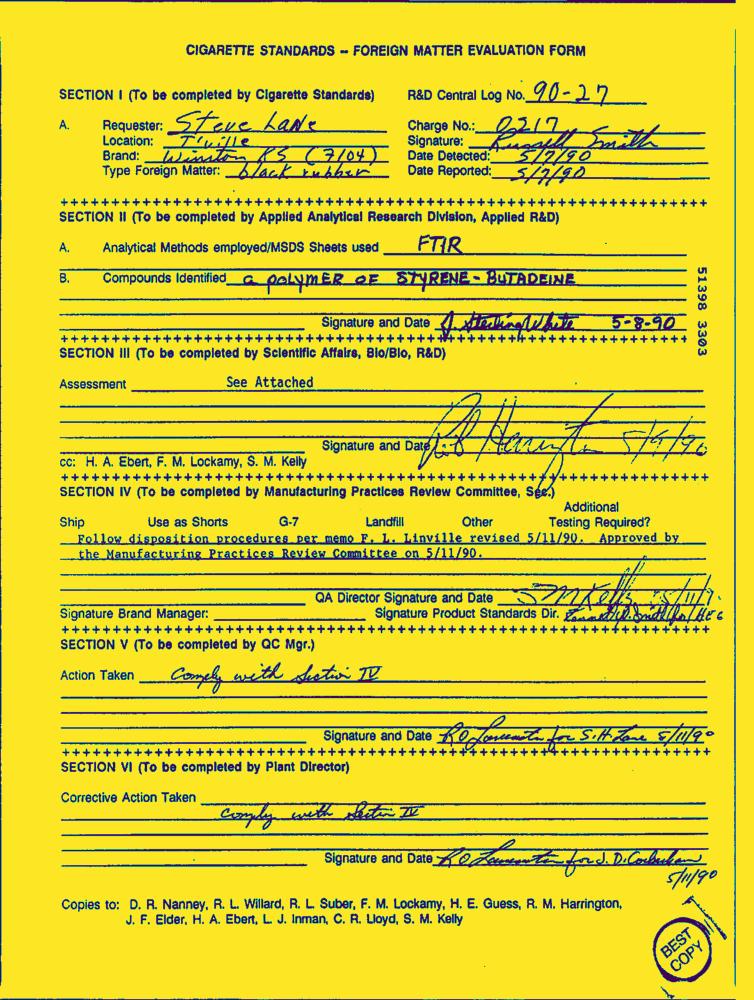 CIGARETTE STANDARDS -- FOREIGN MATTER EVALUATION FORM
SECTION I (To be completed by Cigarette Standards) R&D Central Log No. 90-27
A. Requester: Steve Lane Charge No.: 0217
Location: T'ville Signature: Russell Smith
Brand: Winston KS (7/04) Date Detected: 5/7/90
Type Foreign Matter: black rubber Date Reported: 5/7/90
++++++++++++++++++++++++++++++++++++++++++++++++++++++++++++++++
SECTION II (To be completed by Applied Analytical Research Division, Applied R&D)
A. Analytical Methods employed/MSDS Sheets used FTIR
B. Compounds Identified a POLYMER OF STYRENE-BUTADEINE
Signature and Date J. Sterling White 5-8-90
51398 3303
++++++++++++++++++++++++++++++++++++++++++++++++++++++++++++++++
SECTION III (To be completed by Scientific Affairs, Bio/Bio, R&D)
Assessment See Attached
Signature and Date Harrington 5/9/90
cc: H. A. Ebert, F. M. Lockamy, S. M. Kelly
++++++++++++++++++++++++++++++++++++++++++++++++++++++++++++++++
SECTION IV (To be completed by Manufacturing Practices Review Committee, Sec.)
Additional
Ship Use as Shorts G-7 Landfill Other Testing Required?
Follow disposition procedures per memo F. L. Linville revised 5/11/90. Approved by
the Manufacturing Practices Review Committee on 5/11/90.
QA Director Signature and Date SM Kelly 5/11/9
Signature Brand Manager: Signature Product Standards Dir. Smith for HEG
++++++++++++++++++++++++++++++++++++++++++++++++++++++++++++++++
SECTION V (To be completed by QC Mgr.)
Action Taken Comply with Section IV
Signature and Date RO for S.H. Lane 5/11/90
++++++++++++++++++++++++++++++++++++++++++++++++++++++++++++++++
SECTION VI (To be completed by Plant Director)
Corrective Action Taken
Comply with Section IV
Signature and Date RO for J. D.
5/11/90
Copies to: D. R. Nanney, R. L. Willard, R. L. Suber, F. M. Lockamy, H. E. Guess, R. M. Harrington,
J. F. Elder, H. A. Ebert, L. J. Inman, C. R. Lloyd, S. M. Kelly
BEST
COPY